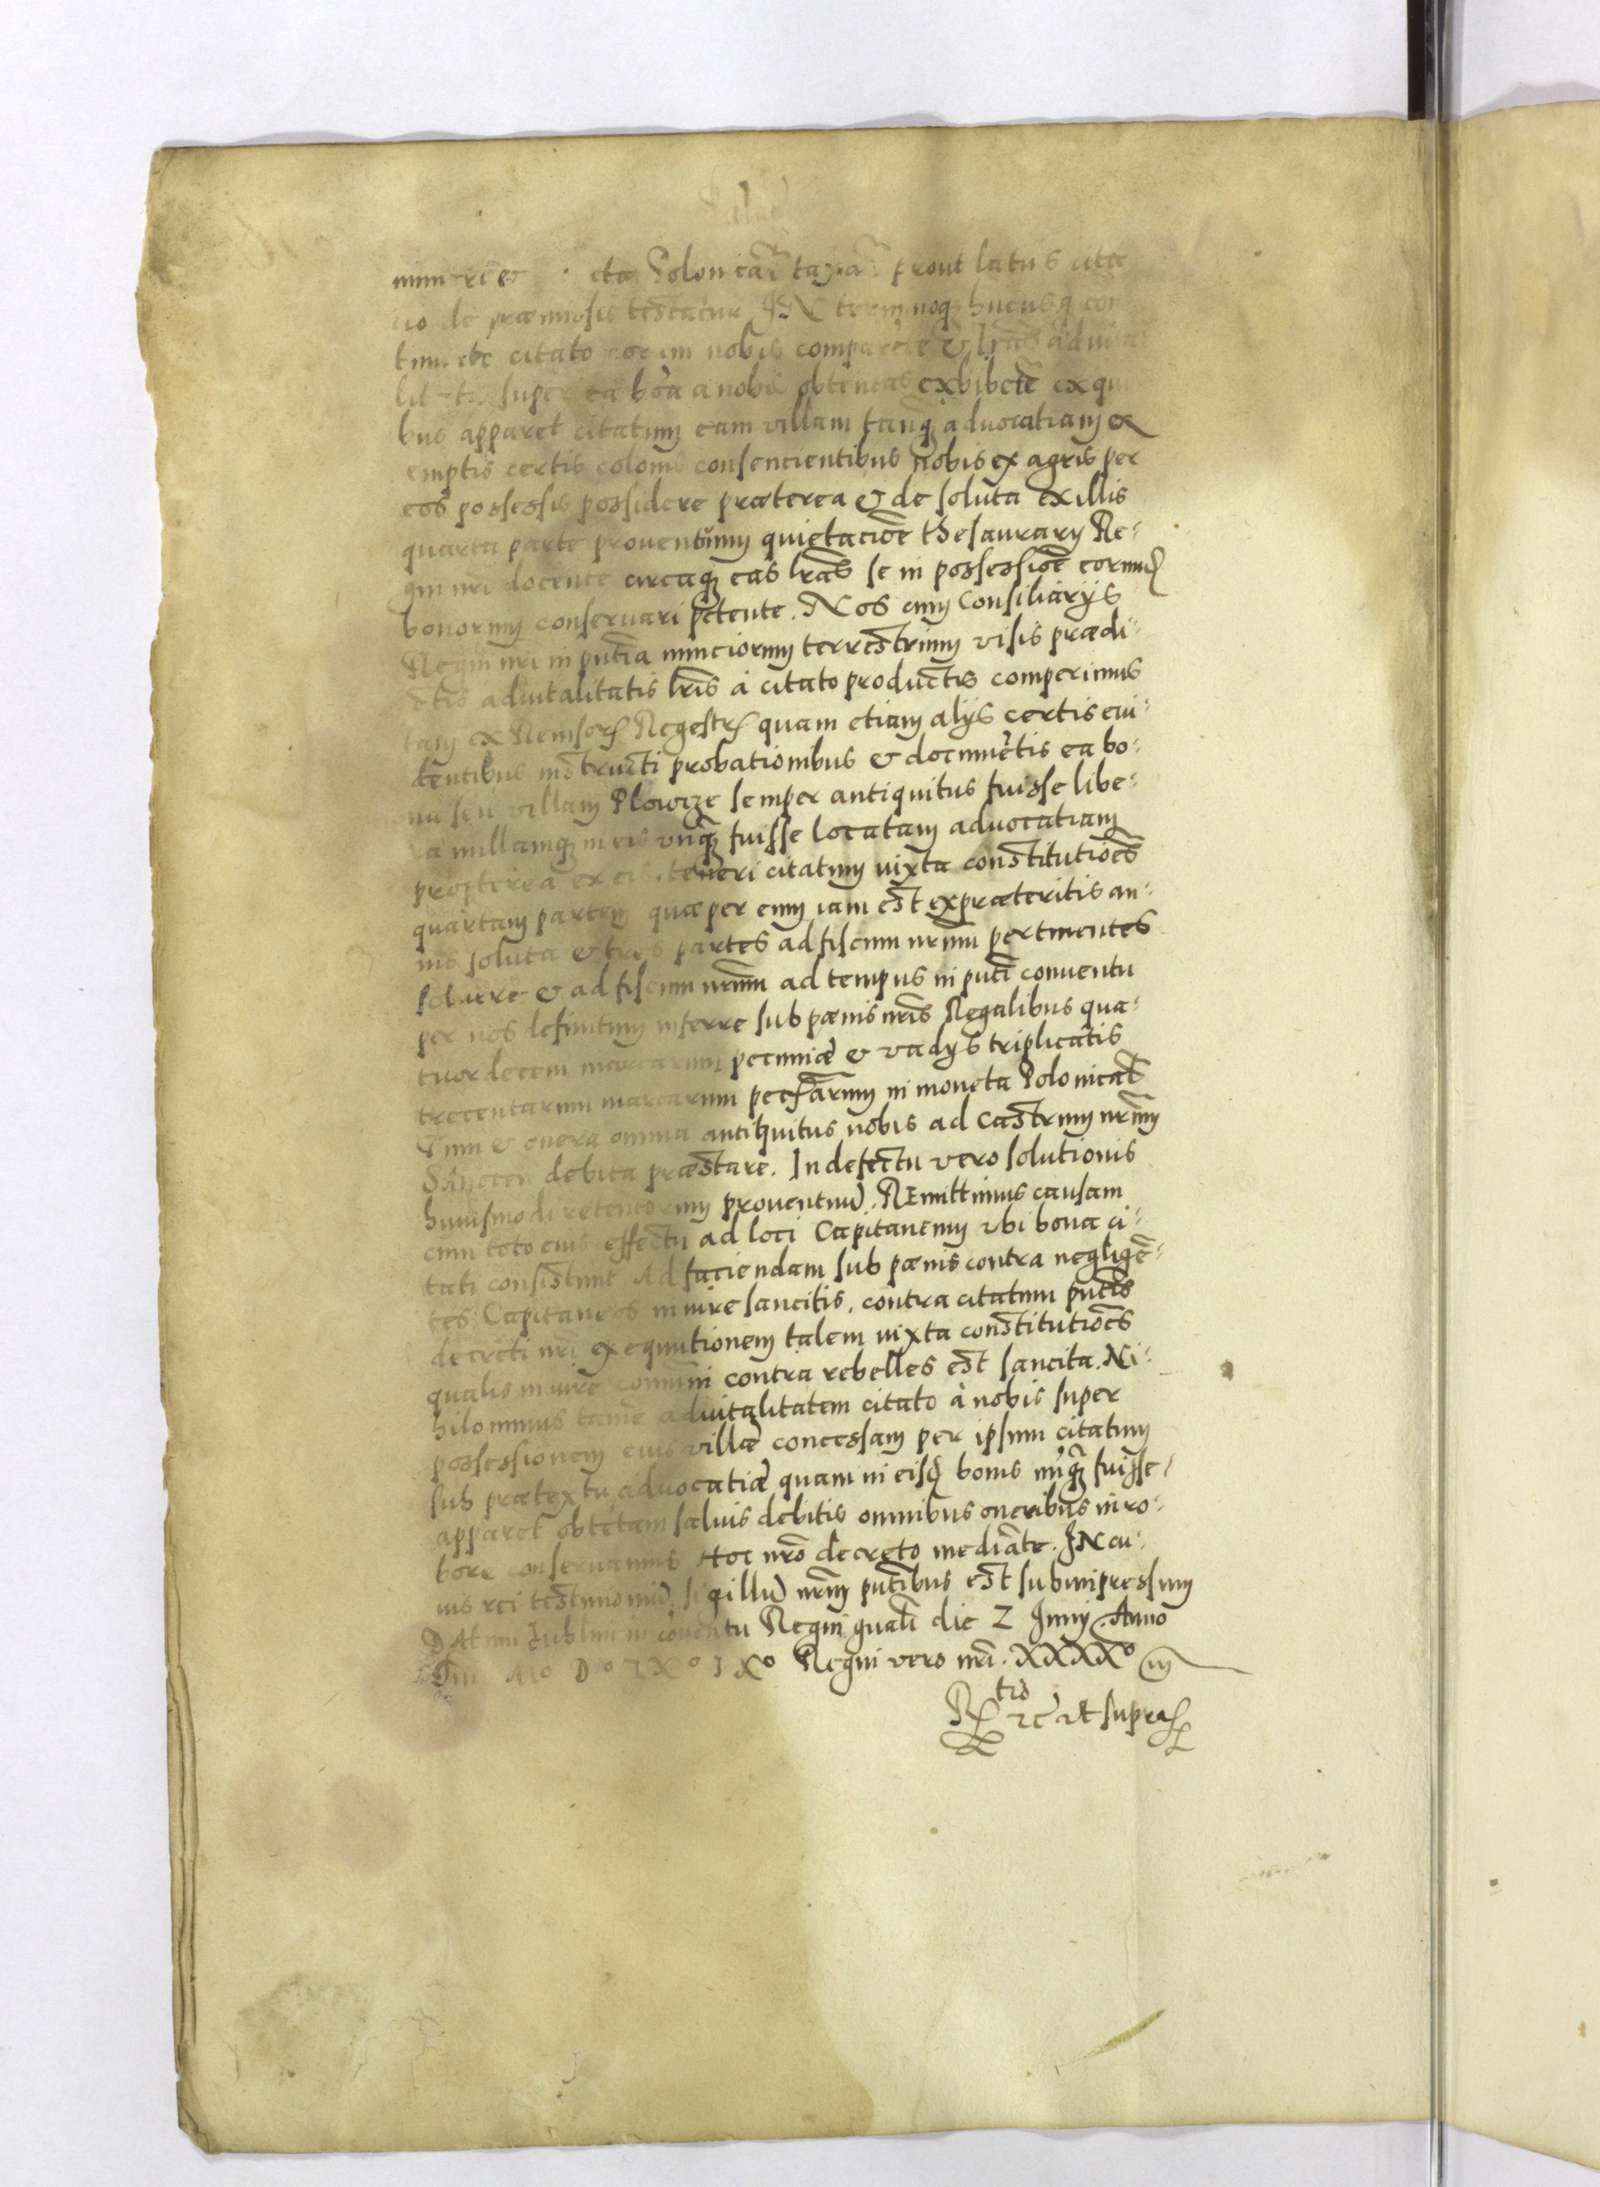 Polonicar̃ taxar̃ prout latius cita
tio de præmissis testatur IN terminoq̨ hucusq̨ con
citato coram nobis comparẽte & lr̃as aduita
super ea bõa a nobis obtentas exhibẽte ex qui
bus apparet citatum eam villam tanq̨ aduocatiam ex
emptis certis colonis consencientibus nobis ex agris per
eos possessis possidere præterea & de soluta ex illis
quarta parte prouentuum quietaciõe thesaurarij Re-
gni nri docente circaq̨ eas lr̃as se in possessiõe eorund̨
bonorum conseruari petente. Nos cum Consiliarijs
Regni nri in pñtia nunciorum terrestrium visis prædi-
ctis aduitalitatis lr̃is a citato productis comperimus
tam ex Reuisor̨ Regestr̨ quam etiam alijs certis eui-
dentibus instructi probationibus & documẽtis ea bo-
na seu villam Plowcze semper antiquitus fuisse libe-
ra nullamq̨ in eis vnq̨ fuisse locatam aduocatiam
propterea ex eis teneri citatum iuxta constitutiões
quartam partem quæ per eum iam est ex præteritis an-
nis soluta & tres partes ad fiscum nrum pertinentes
soluere & ad fiscum nrum ad tempus in pñti conuentu
per nos definitum inferre sub pænis nris Regalibus qua-
tuordecem marcarum pecuniæ & vadijs triplicatis
trecentarum marcarum pecũiarum in moneta Polonicali
Tum & onera omnia antiquitus nobis ad Castrum nrum
debita præstare. In defectu vero solutionis
huiusmodi retentorum prouentuũ. REmittimus causam
cum toto eius effectu ad loci Capitaneum vbi bona ci-
tati consistunt Ad faciendam sub pænis contra negligẽ-
tes Capitaneos in iure sancitis, contra citatum pñtis
decreti nri exequutionem talem iuxta constitutiões
qualis in iure comuni contra rebelles est sancita. Ni-
hilominus tamẽ aduitalitatem citato à nobis super
possessionem eius villæ concessam per ipsum citatum
sub prætextu aduocatiæ quam in eisd̨ bonis nũq̨ fuisse
apparet obtẽtam saluis debitis omnibus oneribus in ro-
bore conseruamus Hoc nro decreto mediãte. IN cu-
ius rei testimoniũ sigillũ nrum pñtibus est subimpressum
DAtum Lublini in cõuentu Regni gñali die 2 Junij Anno
Dni Mº Dº LXº IXº Regni vero nri. XXXXº
R̨ tio &c vt supra